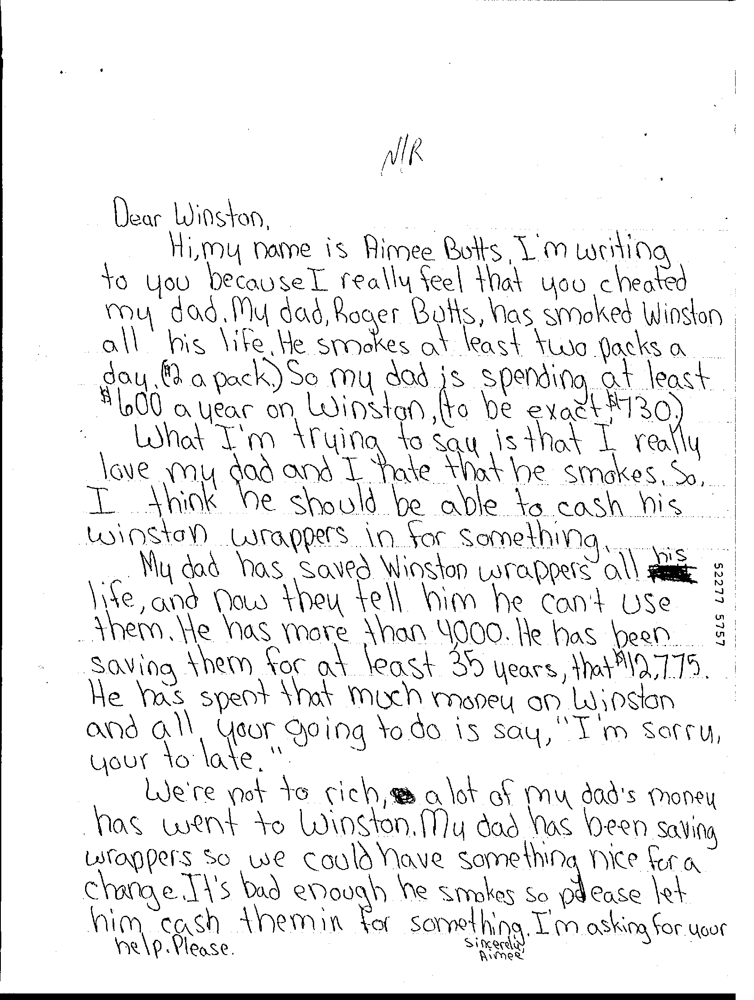 N/R
Dear Winston,
Hi, my name is Aimee Butts, I'm writing
to you because I really feel that you cheated
my dad. My dad, Roger Butts, has smoked Winston
all his life. He smokes at least two packs a
day. ($2 a pack.) So my dad is spending at least
$600 a year on Winston, (to be exact $730.)
What I'm trying to say is that I really
love my dad and I hate that he smokes. So,
I think he should be able to cash his
winston wrappers in for something.
My dad has saved Winston wrappers all his
life, and now they tell him he can't use
them. He has more than 4000. He has been
saving them for at least 35 years, that $12,775.
He has spent that much money on Winston
and all your going to do is say, "I'm sorry,
your to late."
We're not to rich, a lot of my dad's money
has went to Winston. My dad has been saving
wrappers so we could have something nice for a
change. It's bad enough he smokes so please let
him cash them in for something. I'm asking for your
help. Please.
Sincerely,
Aimee
52277 5757